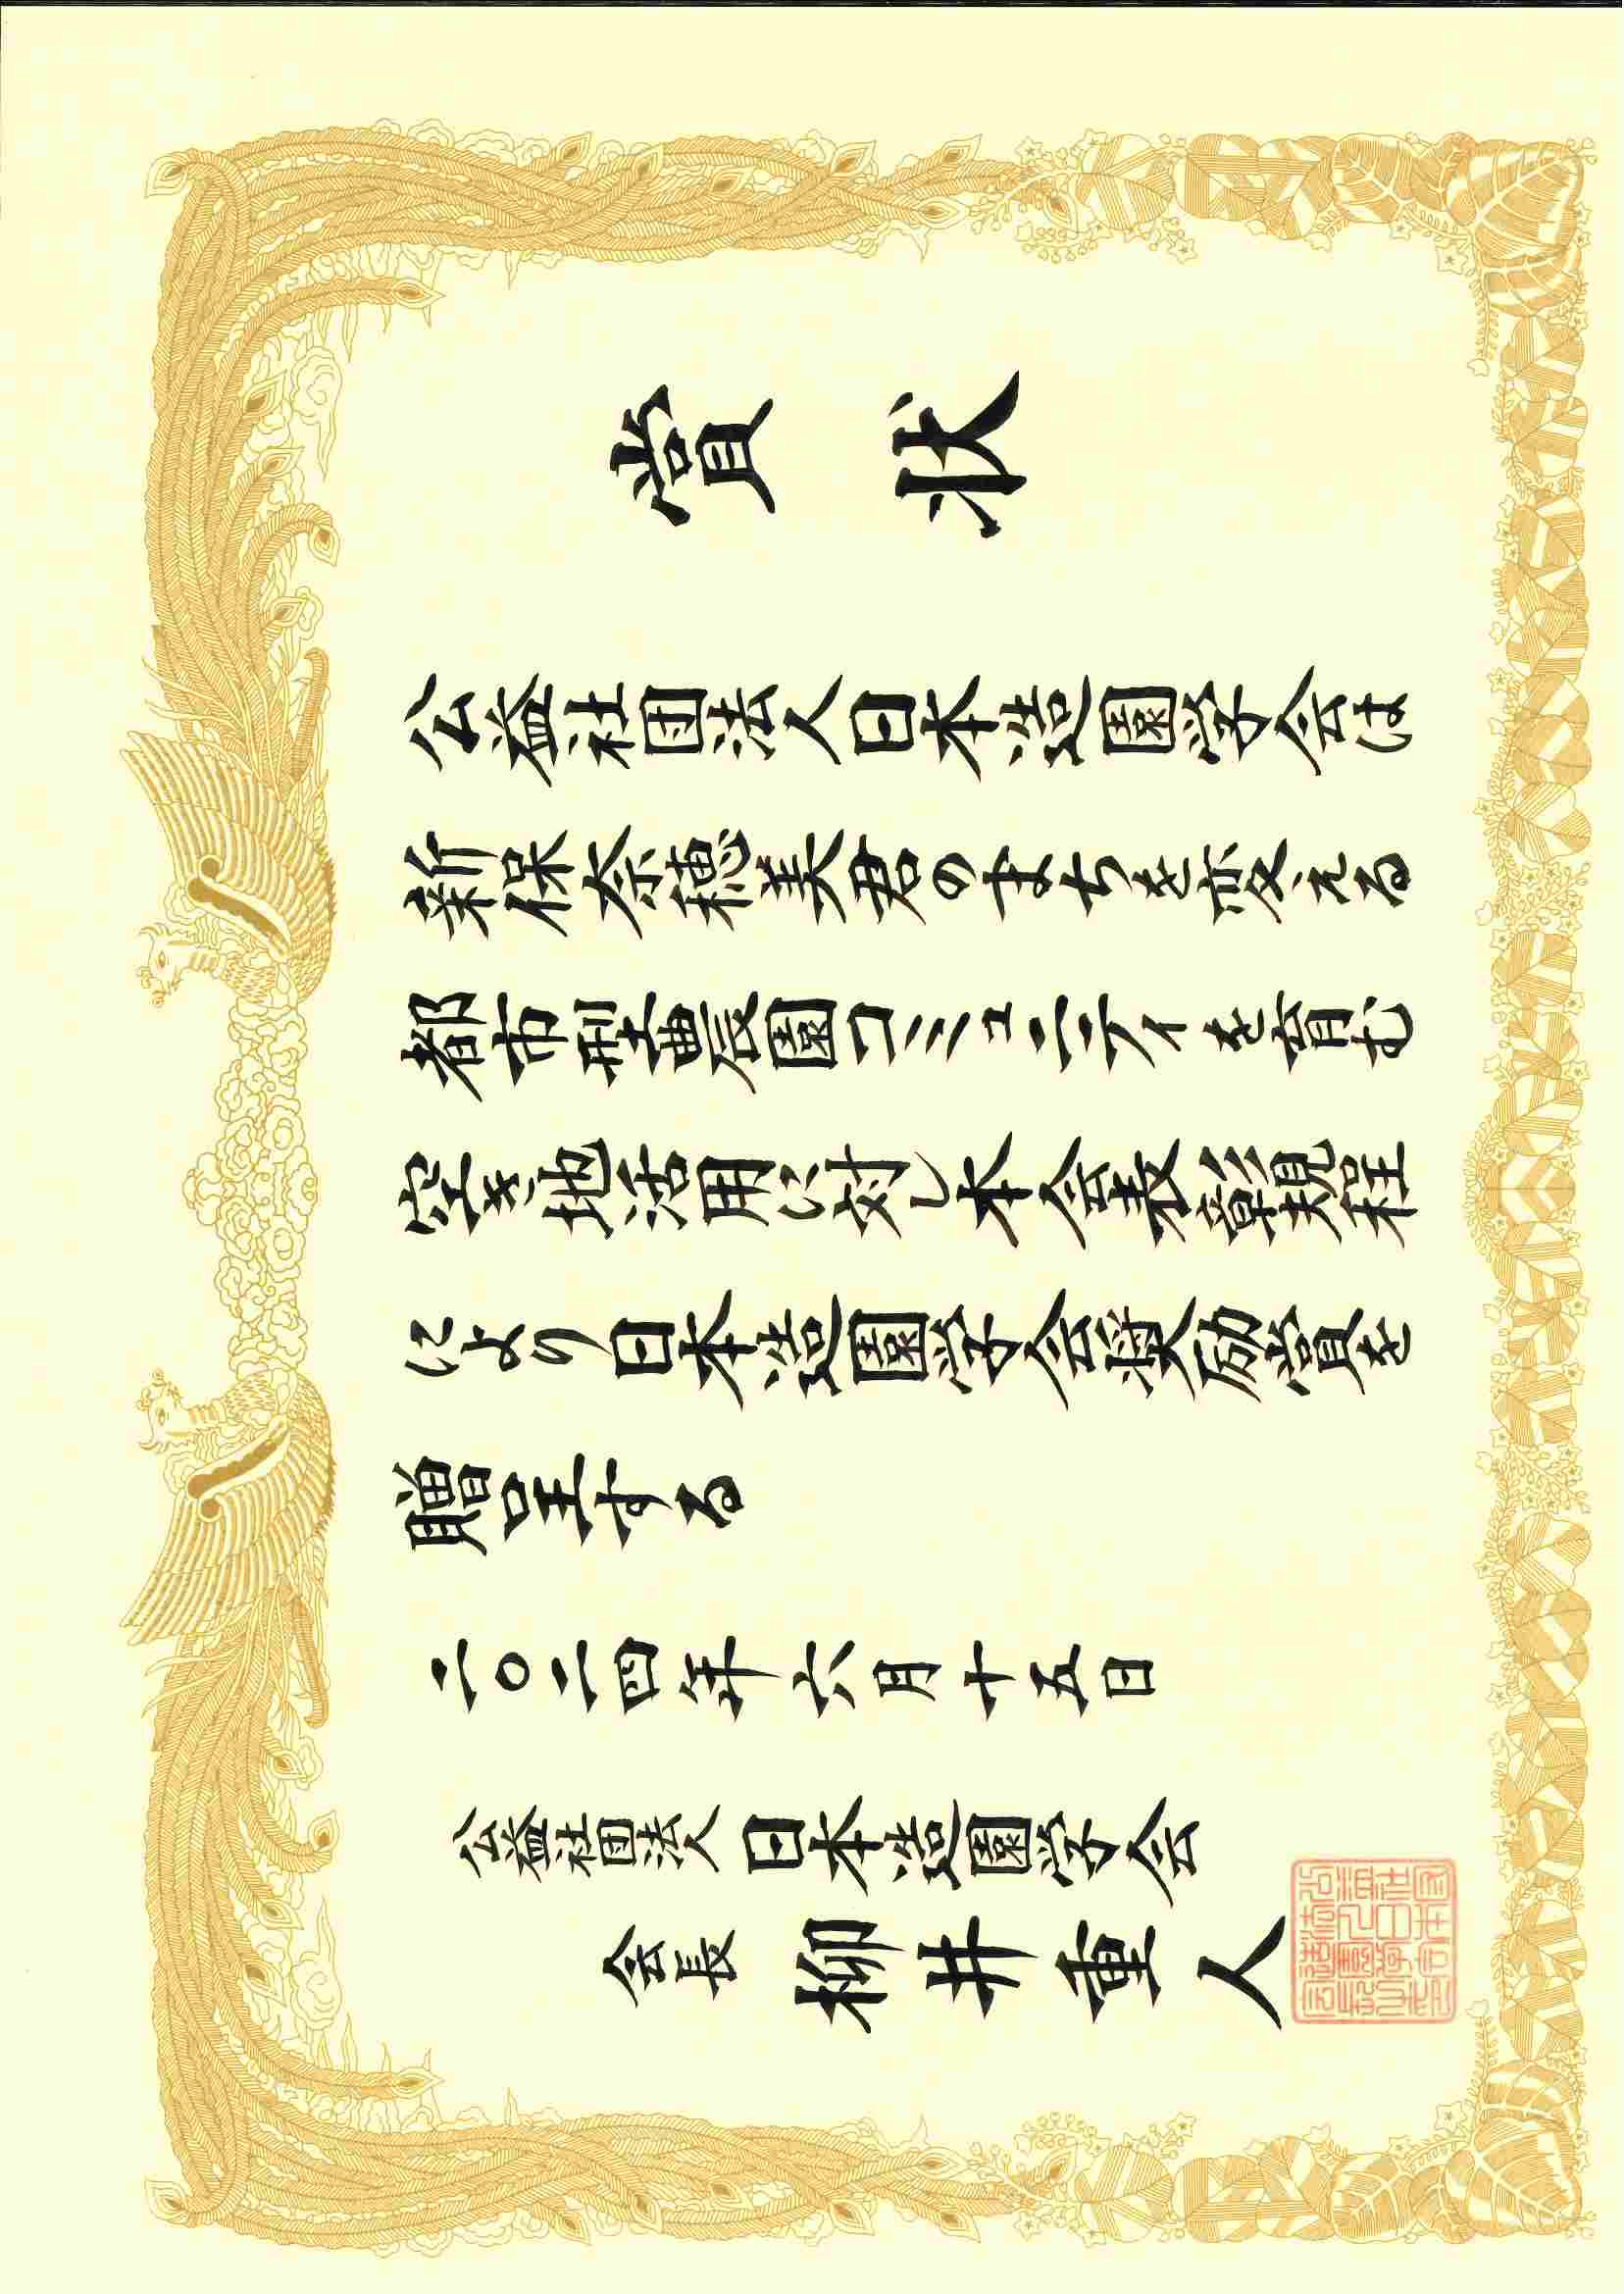 賞状
公益社団法人日本造園学会は
新保奈穂美君のまちを変える
都市型農園コミュニティを育む
空き地活用に対し本会表彰規程
により日本造園学会奨励賞を
贈呈する
二〇二四年六月十五日
公益社団法人日本造園学会
会長 柳井重人